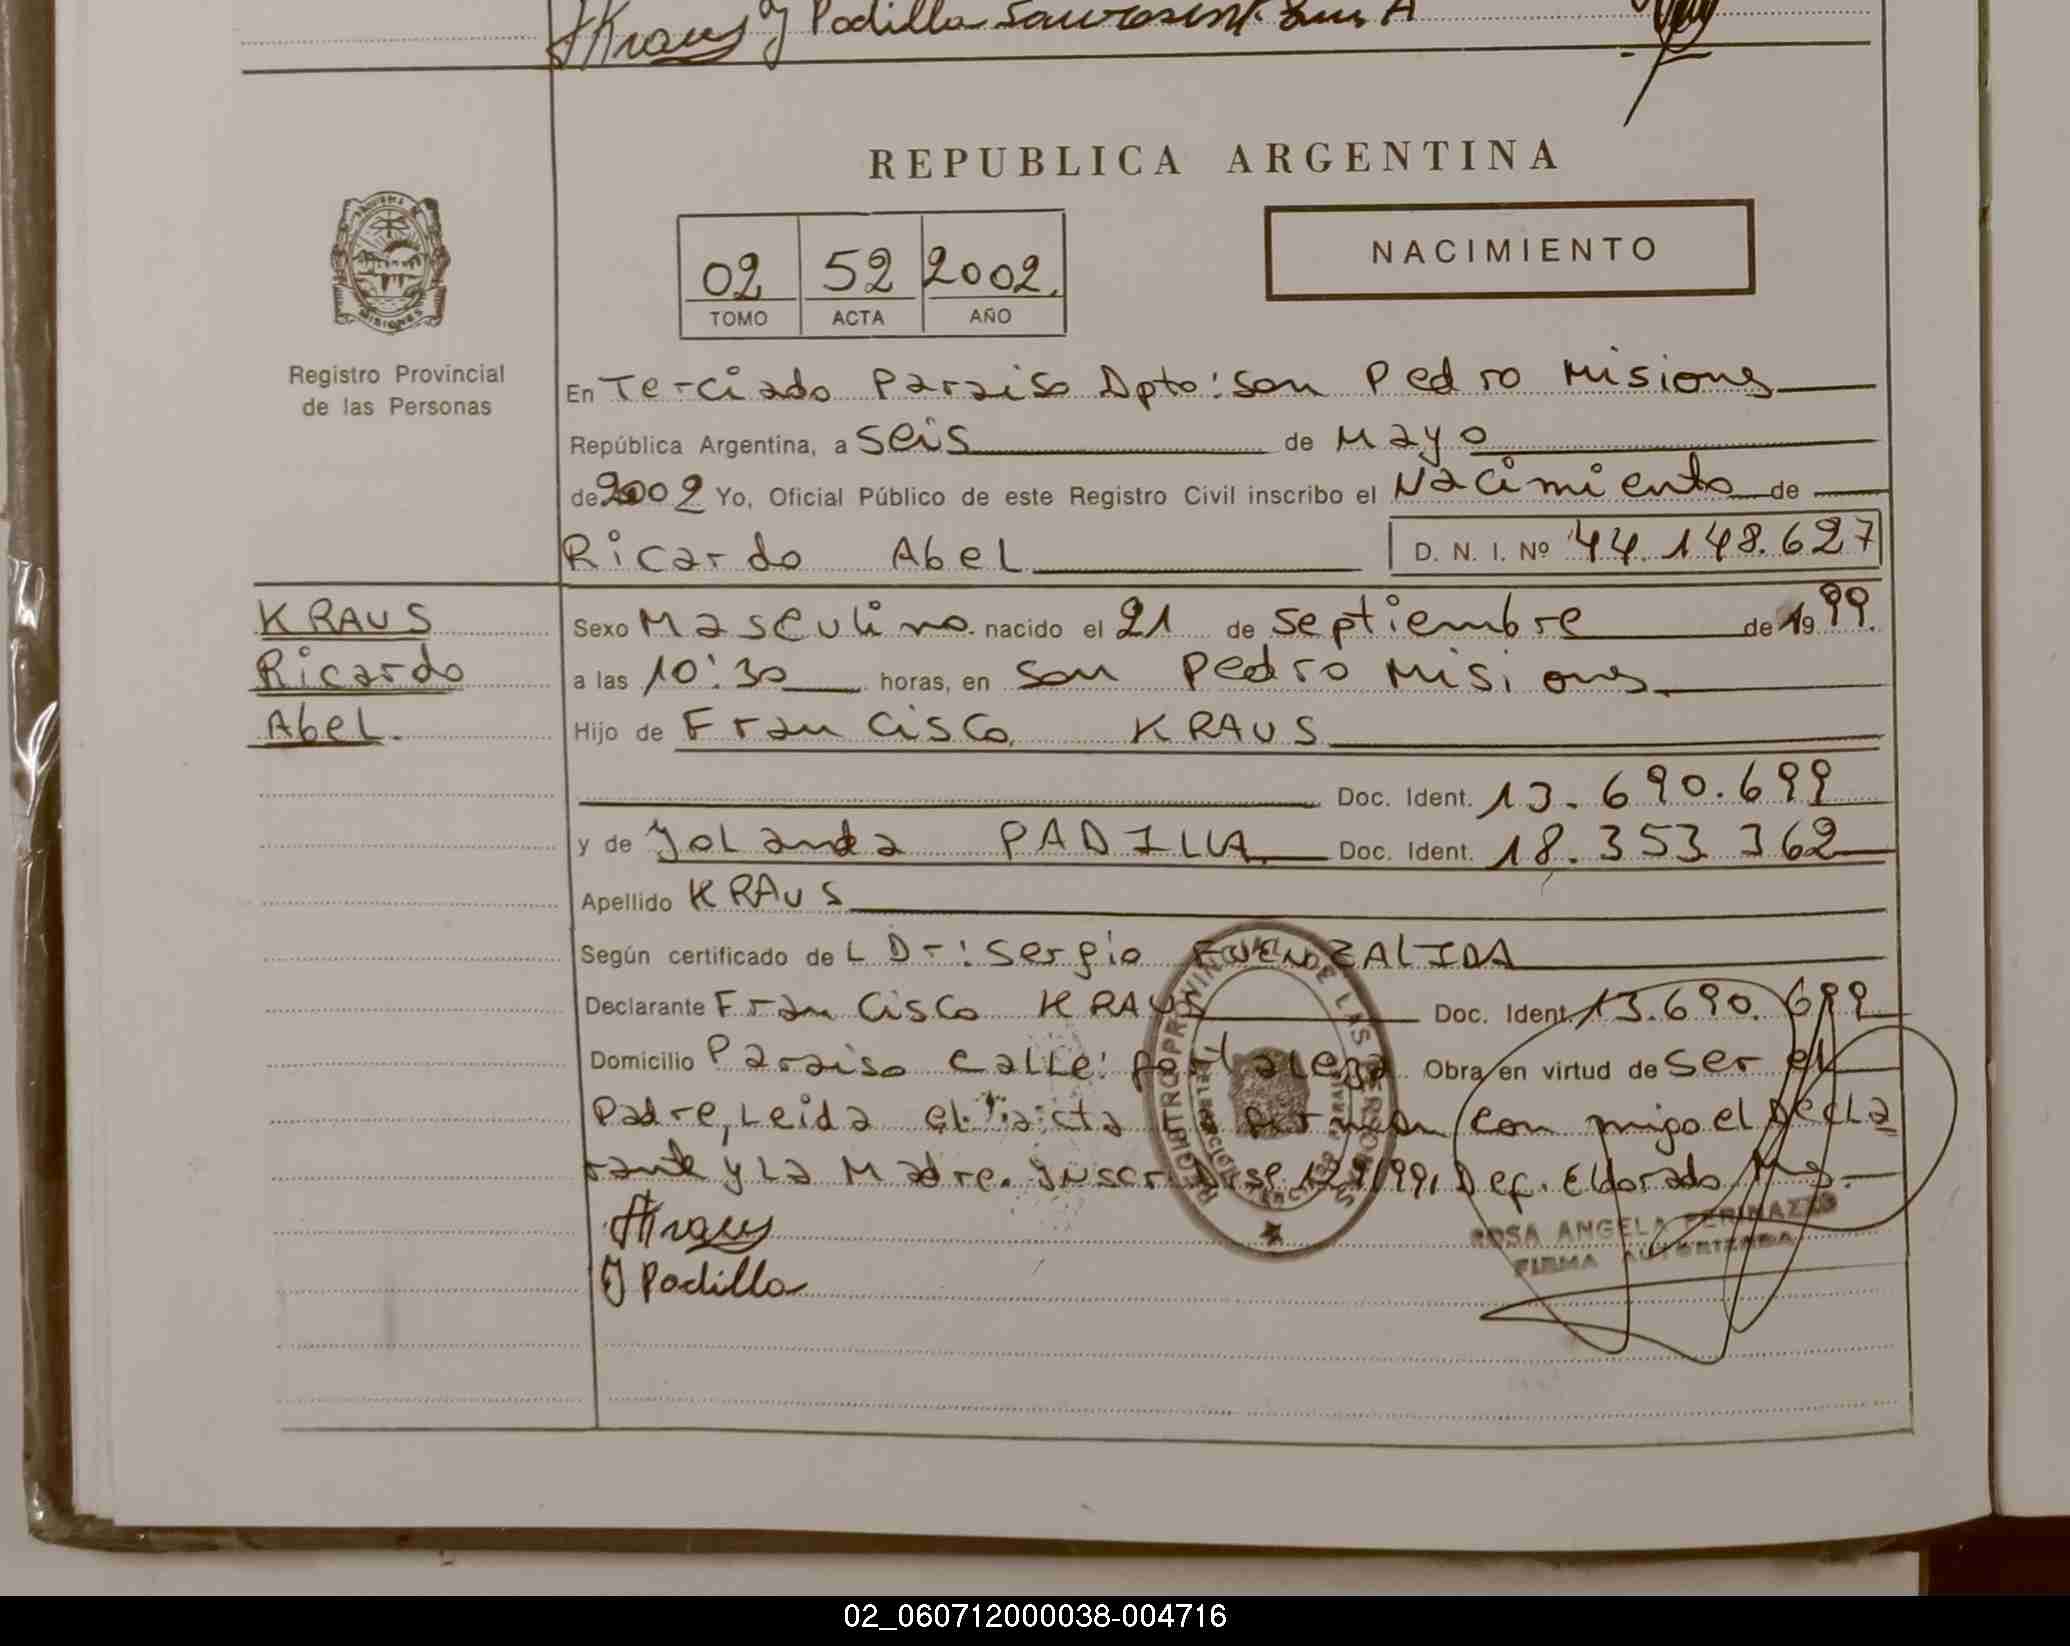 HKraus Y Padilla
REPUBLICA ARGENTINA
MISIONES
02 52 2002.
TOMO ACTA AÑO
NACIMIENTO
Registro Provincial
de las Personas
En Terciado Paraiso Dpto: San Pedro Misiones
República Argentina, a seis de Mayo
de 2002 Yo, Oficial Público de este Registro Civil inscribo el Nacimiento de
Ricardo Abel D. N. I. Nº 44.148.627
KRAUS
Ricardo
Abel.
Sexo Masculino. nacido el 21 de septiembre de 1999.
a las 10:30 horas, en San Pedro Misiones.
Hijo de Francisco KRAUS
Doc. Ident. 13.690.699
y de Yolanda PADILLA. Doc. Ident. 18.353 362
Apellido KRAUS
Según certificado de L Dr: Sergio FUENZALIDA
Declarante Francisco KRAUS Doc. Ident. 13.690.699
Domicilio Paraiso calle: Obra en virtud de ser el
Padre, Leida el acta con migo el Decla
rante y La Madre. 129/99, Def. Eldorado Ms.
HKraus
Y Padilla
ROSA ANGELA
FIRMA AUTORIZADA
02_060712000038-004716